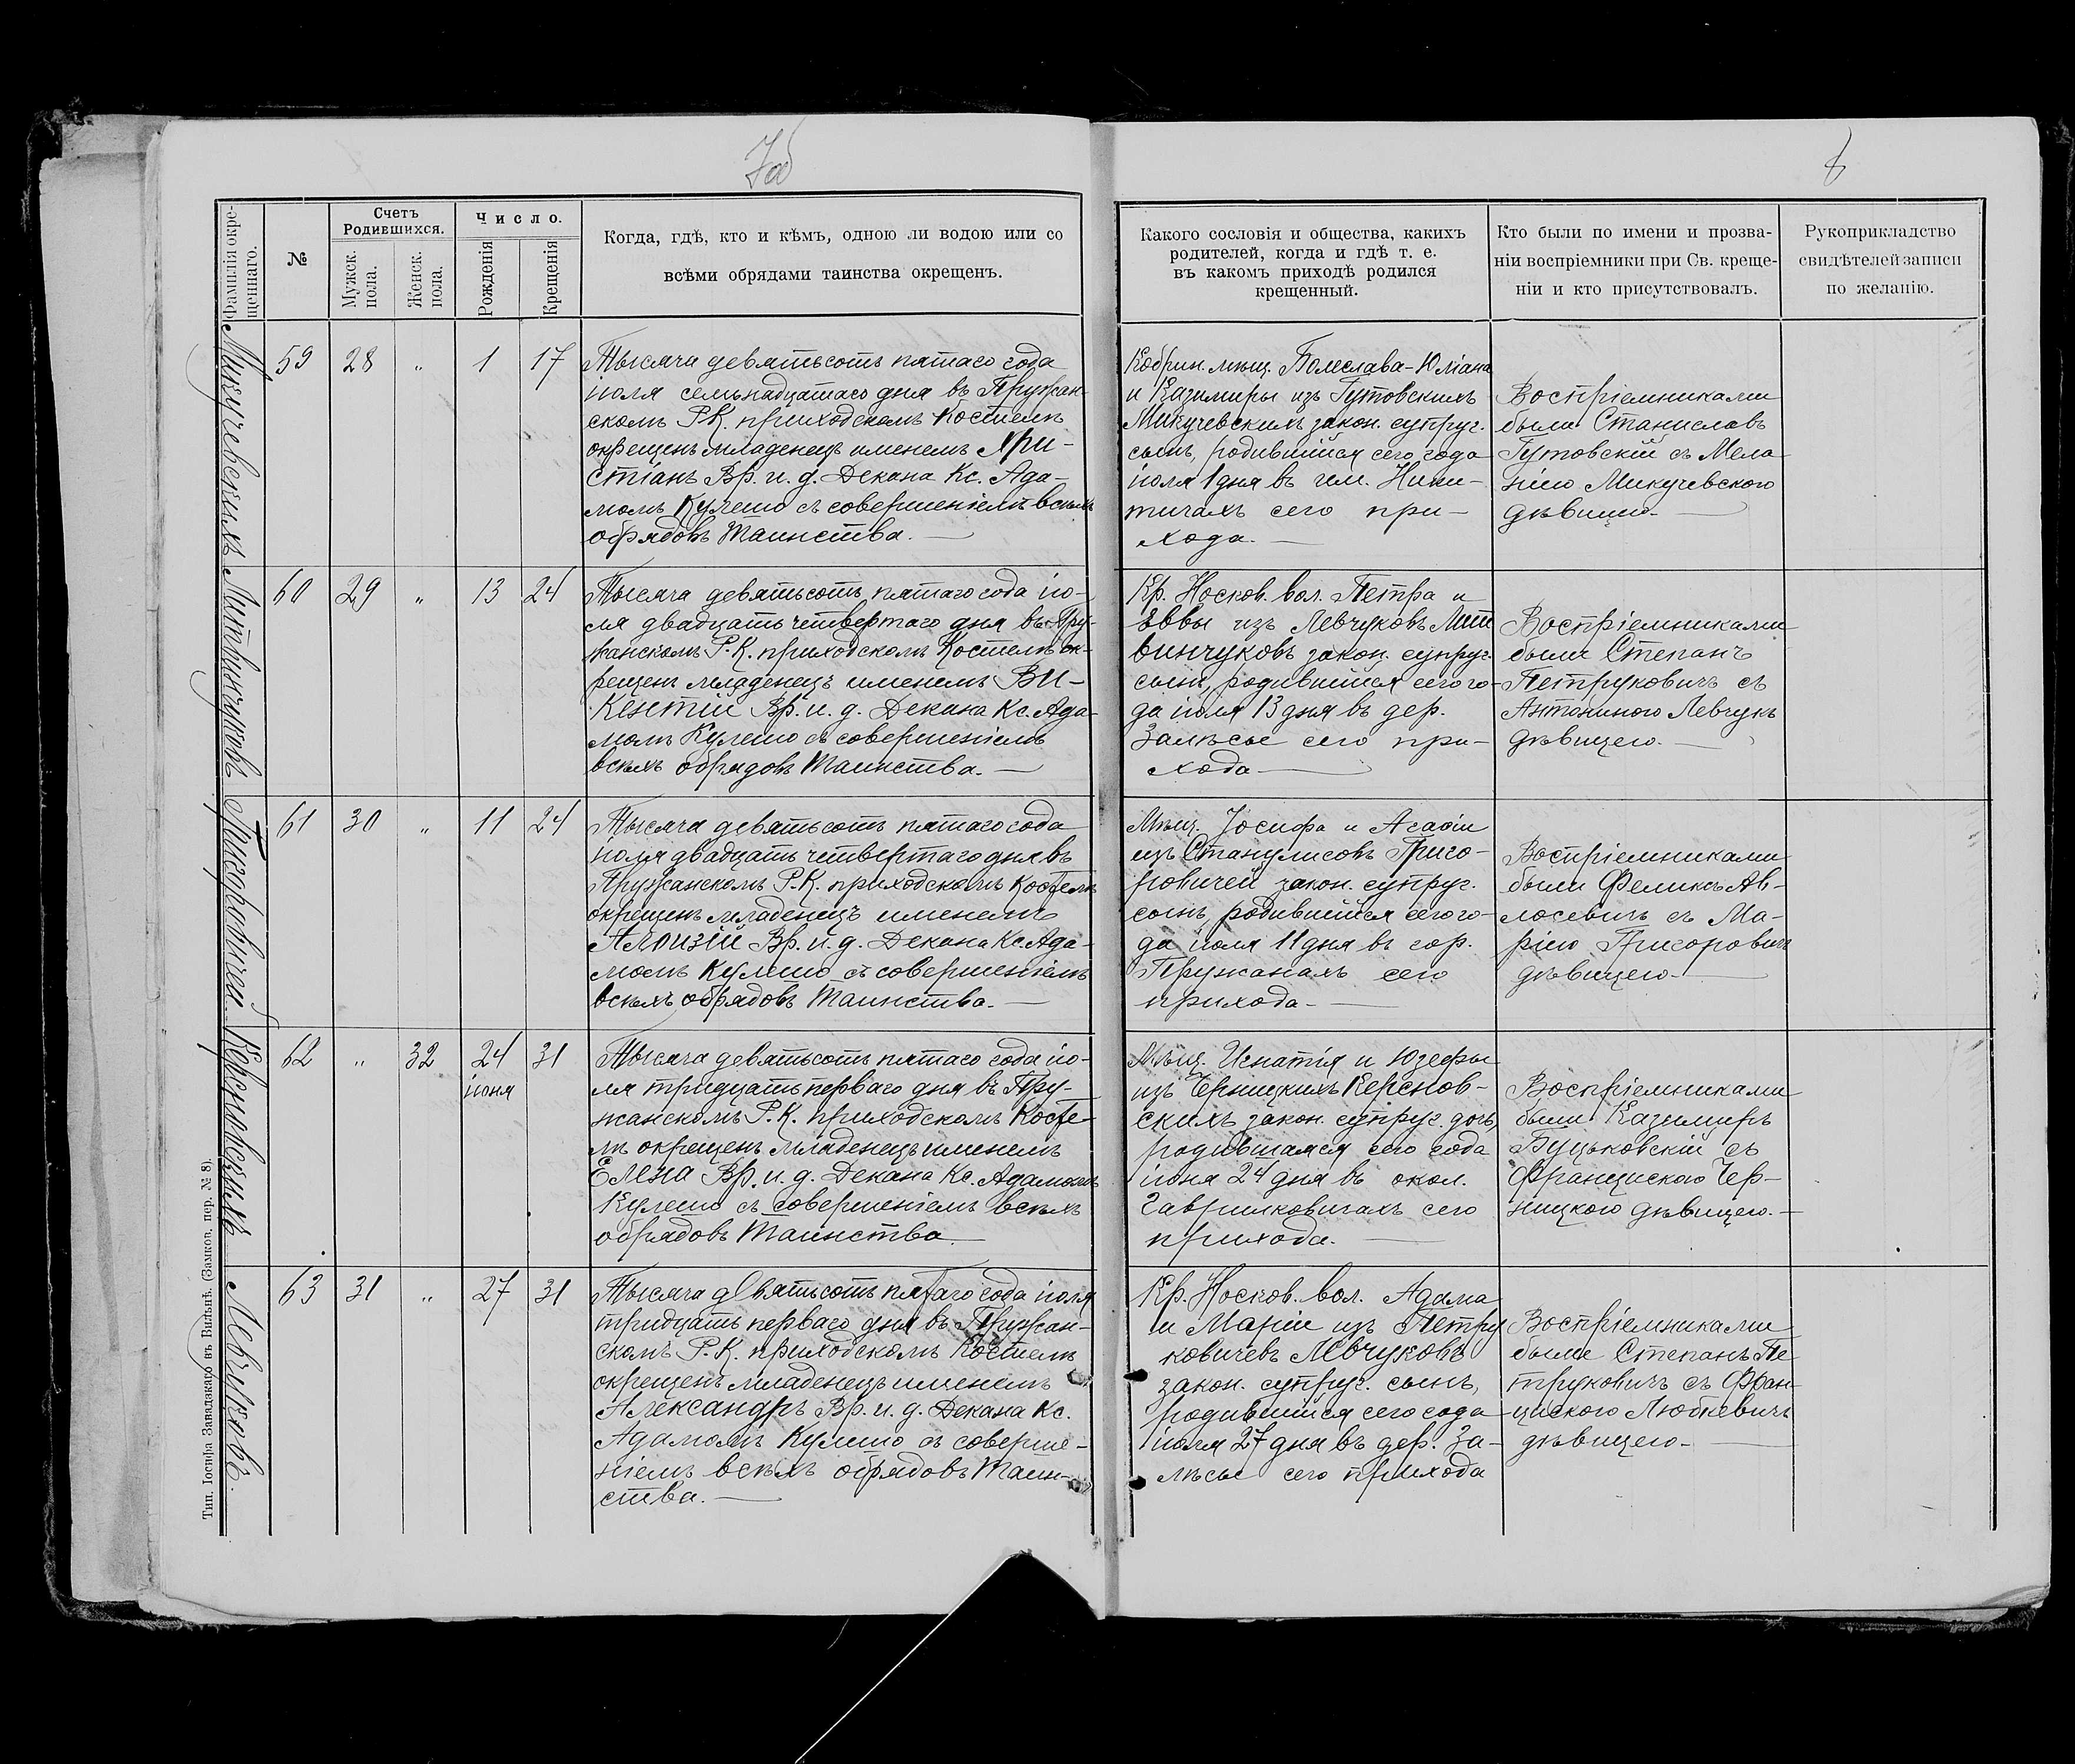 7об
8
Фамилія окре-
щеннаго.
№
Счетъ
Родившихся.
Мужск.
пола.
Женск.
пола.
Число.
Рожденія
Крещенія
Когда, гдѣ, кто и кѣмъ, одною ли водою или со
всѣми обрядами таинства окрещенъ.
Какого сословія и общества, какихъ
родителей, когда и гдѣ т. е.
въ какомъ приходѣ родился
крещенный.
Кто были по имени и прозва-
ніи воспріемники при Св. креще-
ніи и кто присутствовалъ.
Рукоприкладство
свидѣтелей записи
по желанію.
Микучевскихъ
59 28 " 1 17
Тысяча девятьсотъ пятаго года
іюля семьнадцатаго дня въ Пружан-
скомъ Р.К. приходскомъ Костелѣ
окрещенъ младенецъ именемъ Хри-
стіанъ Вр. и. д. Декана Кс. Ада-
момъ Кулешо съ совершеніемъ всѣхъ
обрядовъ Таинства.
Кобрин. мѣщ. Болеслава-Юліана
и Казимиры изъ Гутовскихъ
Микучевскихъ закон. супруг.
сынъ, родившійся сего года
іюля 1 дня въ им.
сего при-
хода.
Воспріемниками
были Станиславъ
Гутовскій съ Мела
ніею Микучевскою
дѣвицею.
Литвинчуковъ
60 29 " 13 24
Тысяча девятьсотъ пятаго года ію-
ля двадцать четвертаго дня въ Пру-
жанскомъ Р.К. приходскомъ Костелѣ ок-
рещенъ младенецъ именемъ Ви-
кентій Вр. и. д. Декана Кс. Ада-
момъ Кулешо съ совершеніемъ
всѣхъ обрядовъ Таинства.
Кр. Носков. вол. Петра и
Еввы изъ Левчуковъ Лит
винчуковъ закон. супруг.
сынъ, родившійся сего го-
да іюля 13 дня въ дер.
Залѣсье сего при-
хода
Воспріемниками
были Степанъ
Петруковичъ съ
Антониною Левчукъ
дѣвицею.
Григоровичей
61 30 " 11 24
Тысяча девятьсотъ пятаго года
іюля двадцать четвертаго дня въ
Пружанскомъ Р.К. приходскомъ Костелѣ
окрещенъ младенецъ именемъ
Алоизій Вр. и. д. Декана Кс. Ада-
момъ Кулешо съ совершеніемъ
всѣхъ обрядовъ Таинства.
Мѣщ. Іосифа и Агафіи
изъ Станулисовъ Григо-
ровичей закон. супруг.
сынъ, родившійся сего го-
да іюля 11 дня въ гор.
Пружанахъ сего
прихода.
Воспріемниками
были Феликсъ Ав-
лосевичъ съ Ма-
ріею Григоровичъ
дѣвицею.
Керсновскихъ
62 " 32 24 31
іюня
Тысяча девятьсотъ пятаго года ію-
ля тридцать перваго дня въ Пру-
жанскомъ Р.К. приходскомъ Косте-
лѣ окрещенъ младенецъ именемъ
Елена Вр. и. д. Декана Кс. Адамомъ
Кулешо съ совершеніемъ всѣхъ
обрядовъ Таинства
Мѣщ. Игнатія и Юзефы
изъ Черницкихъ Керснов-
скихъ закон. супруг. дочь,
родившаяся сего года
іюня 24 дня въ окол.
Гавриловичахъ сего
прихода.
Воспріемниками
были Казимиръ
Буцьковскій съ
Францискою Чер-
ницкою дѣвицею.
Левчуковъ.
63 31 " 27 31
Тысяча девятьсотъ пятаго года іюля
тридцать перваго дня въ Пружан-
скомъ Р.К. приходскомъ Костелѣ
окрещенъ младенецъ именемъ
Александръ Вр. и. д. Декана Кс.
Адамомъ Кулешо съ соверше-
ніемъ всѣхъ обрядовъ Таин-
ства.
Кр. Носков. вол. Адама
и Маріи изъ Петру
ковичевъ Левчуковъ
закон. супруг. сынъ,
родившійся сего года
іюля 27 дня въ дер. За-
лѣсье сего прихода
Воспріемниками
были Степанъ Пе
труковичъ съ Фран-
цискою Любкевичъ
дѣвицею.
Тип. Іосифа Завадзкаго въ Вильнѣ. (Замков. пер. № 8).